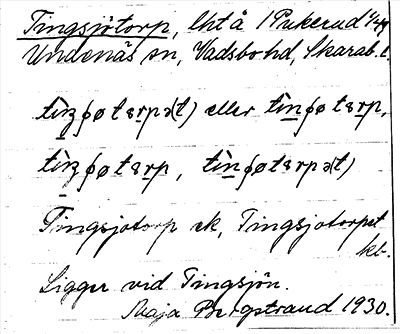 Tingsjötorp, lht å 1 Pukerud 1/4 m
Undenäs sn, Vadsbo hd, Skarab. l.
tìŋʂøtɛrpə(t) eller tìnʂøtɛrp,
tìŋʂøtɛrp, tìnʂøtɛrpə(t)
Tingsjötorp ek, Tingsjötorpet
kb.
Ligger vid Tingsjön.
Maja Bergstrand 1930.